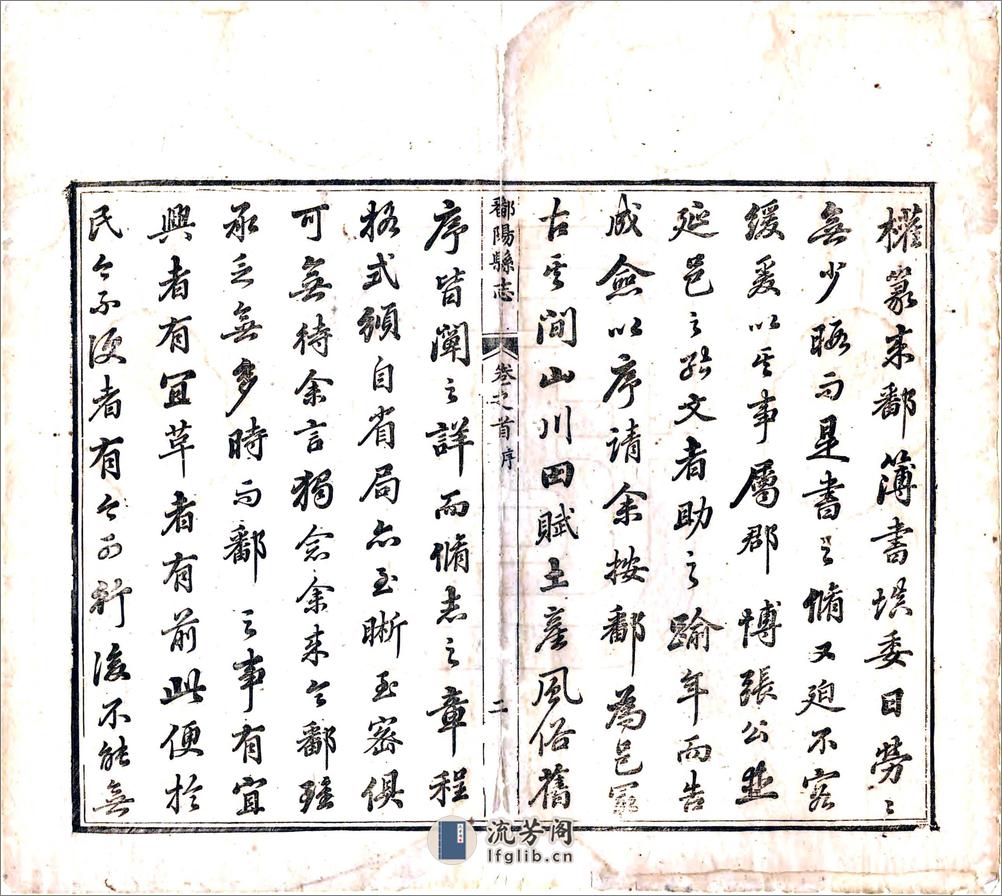 權篆來鄱簿書填委日勞勞
無少暇而是書之脩又迫不容
緩爰以其事屬郡博張公并
延邑之能文者助之踰年而告
成僉以序請余按鄱為邑冣
古其間山川田賦土產風俗舊
鄱陽縣志 卷之首 序 二
序皆闡之詳而脩志之章程
格式類自省局亦至晰至密俱
可無待余言獨念余來令鄱雖
承乏無多時而鄱之事有宜
興者有宜革者有前此便於
民今不便者有今可行後不能無
流芳阁
lfglib.cn